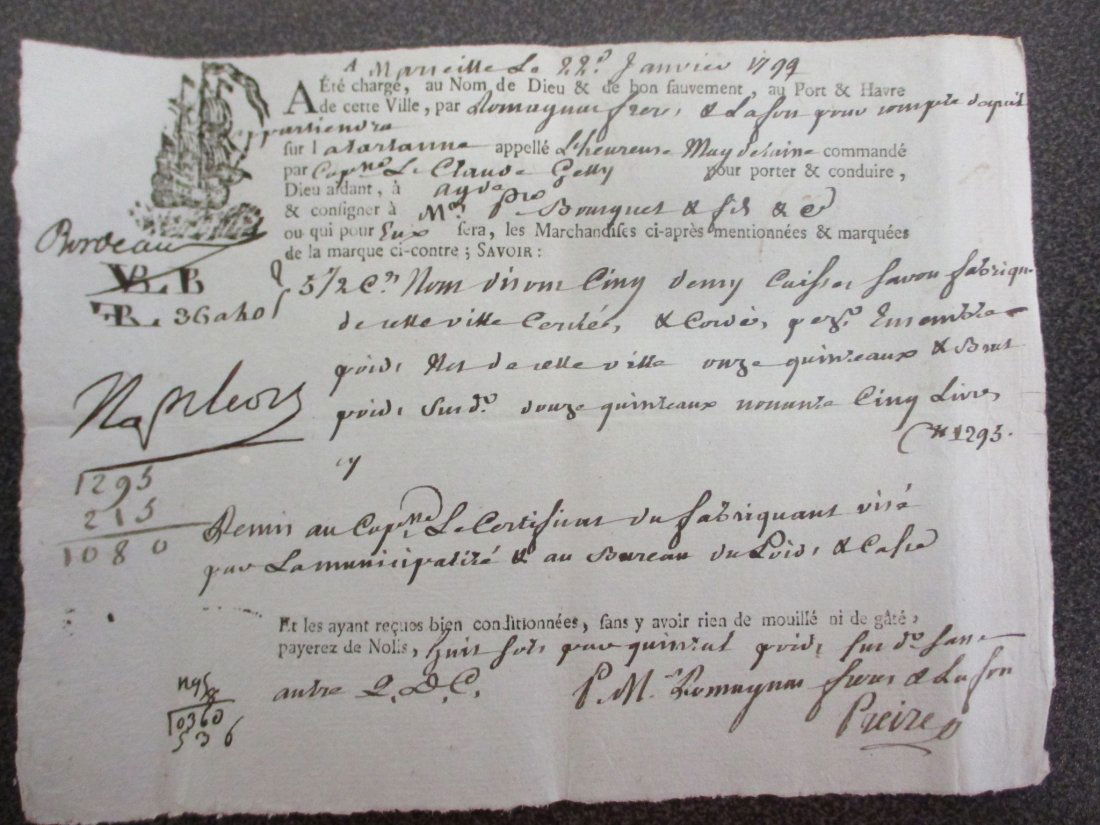 A Marseille Le 22.e Janvier 1792
A Été chargé, au Nom de Dieu & de bon sauvement, au Port & Havre
de cette Ville, par Romagnac freres & Lafon pour compte d'a qui il
appartiendra
sur l atartanne appellé L'heureuse Magdelaine commandé
par Cap.ne Le Claude Gelly pour porter & conduire,
Dieu aidant, à agde
& consigner à Mrs. Pre Bourguet & fils & Ce
ou qui pour Eux sera, les Marchandises ci-après mentionnées & marquées
de la marque ci-contre ; SAVOIR :
Bordeau
VLB
LR 36 a 40
5 1/2 Cn Nom disons Cinq demy Caisses savon fabrique
de cette ville Cerclées, & Cordées, Ensemble
poids Net de cette ville onze quinteaux & Brut
poids Sur do. douze quinteaux nonante Cinq Livres
1295.
1295
215
1080
Remis au Cap.ne Le Certificat du fabriquant visé
par La municipalité & au Bureau du Poids & Casse
Et les ayant reçues bien conditionnées, sans y avoir rien de mouillé ni de gâté,
payerez de Nolis, huit sols par quintal poids Sur do. sans
autre Q. D. C. P. Mrs Romagnac freres & Lafon
0360
536